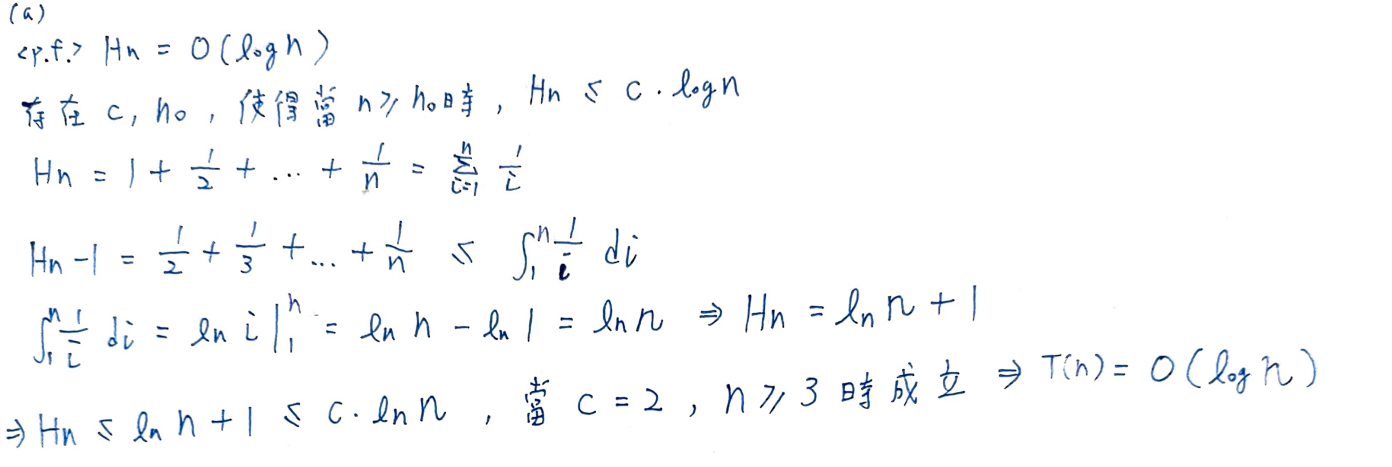 (a)
<p.f.> Hn = O(log n)
存在 c, n₀, 使得當 n ≥ n₀時, Hn ≤ c · log n
Hn = 1 + 1/2 + ... + 1/n = ∑_{i=1}^{n} 1/i
Hn - 1 = 1/2 + 1/3 + ... + 1/n ≤ ∫₁ⁿ 1/i di
∫₁ⁿ 1/i di = ln i |₁ⁿ = ln n - ln 1 = ln n ⇒ Hn = ln n + 1
⇒ Hn ≤ ln n + 1 ≤ c · ln n , 當 c = 2 , n ≥ 3 時成立 ⇒ T(n) = O(log n)